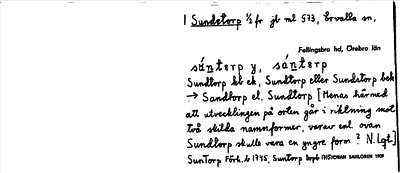 1 Sundstorp 1/2 fr jb ml 573, Ervalla sn,
Fellingsbro hd, Örebro län
súntorp y, sántorp
Sundtorp bb ek, Sundtorp eller Sundstorp bek
→ Sandtorp el. Sundtorp [Menas härmed
att utvecklingen på orten går i riktning mot
två skilda namnformer, varav enl. ovan
Sundtorp skulle vara en yngre form? N.Lqt]
SunTorp Förh. b 1745, Suntorp